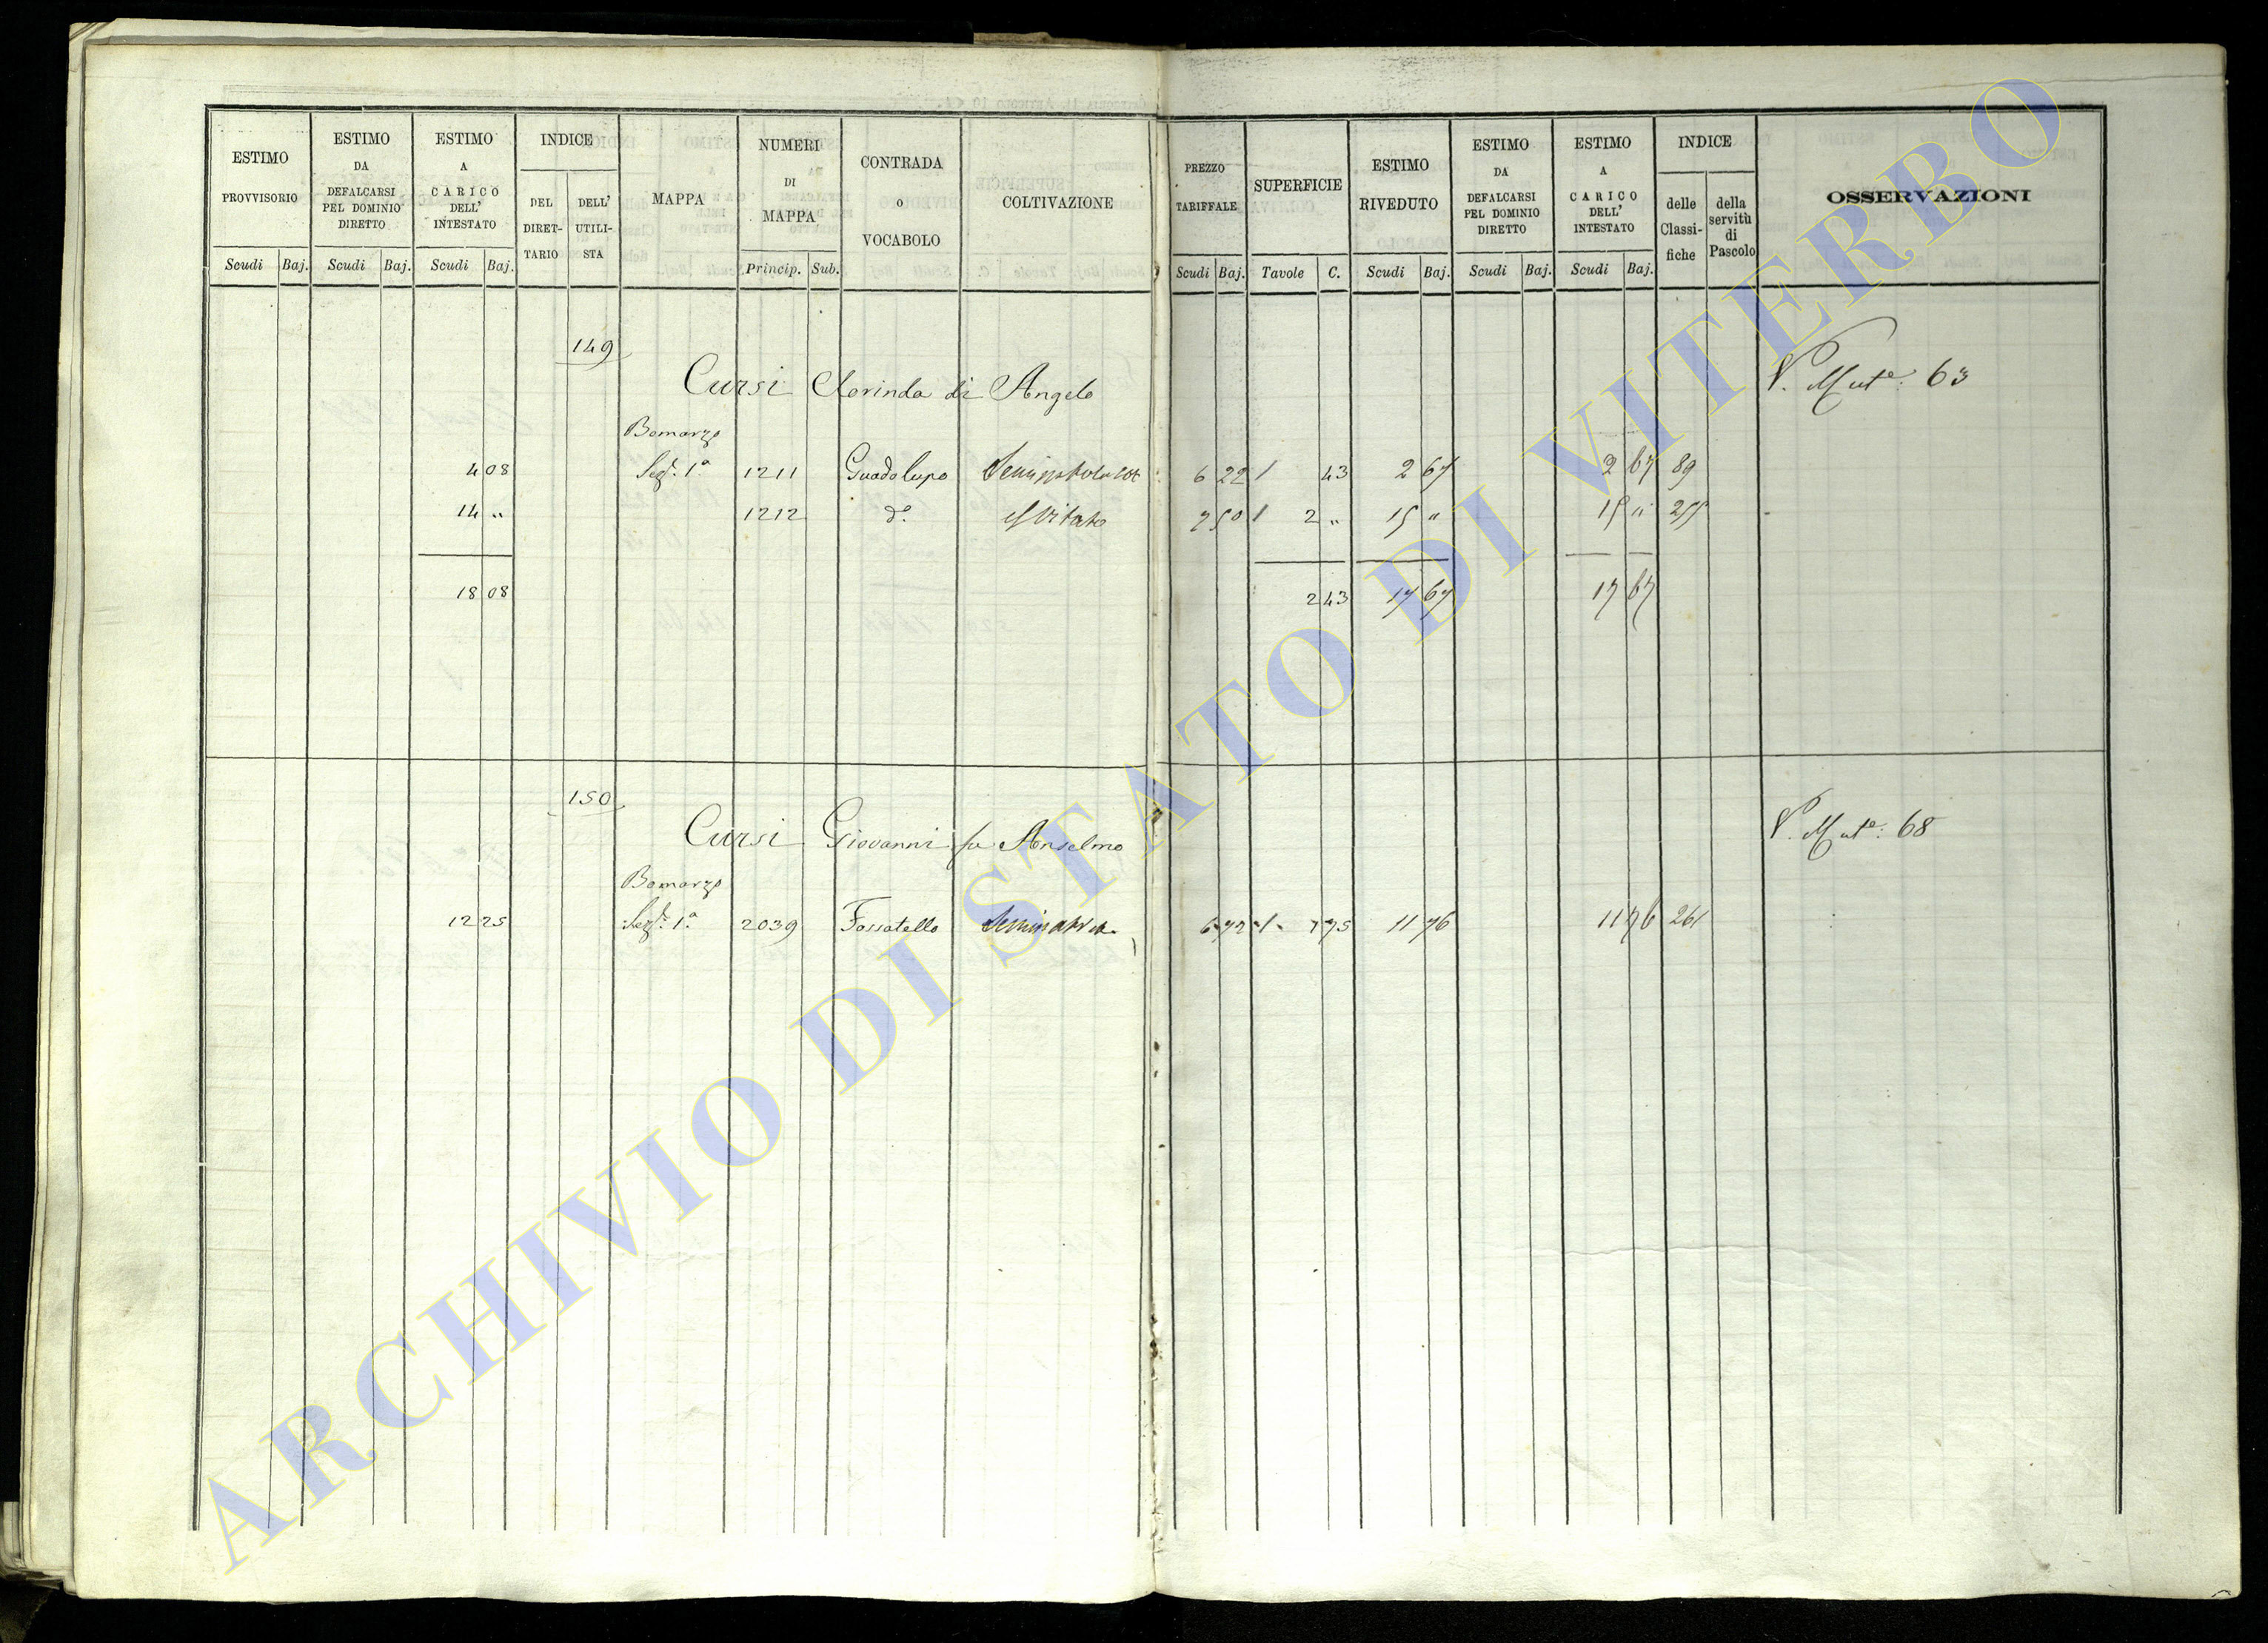 ESTIMO PROVVISORIO Scudi Baj.
ESTIMO DA DEFALCARSI PEL DOMINIO DIRETTO Scudi Baj.
ESTIMO A CARICO DELL' INTESTATO Scudi Baj.
INDICE DEL DIRETTARIO DELL' UTILISTA
MAPPA
NUMERI DI MAPPA Princip. Sub.
CONTRADA o VOCABOLO
COLTIVAZIONE
PREZZO TARIFFALE Scudi Baj.
SUPERFICIE Tavole C.
ESTIMO RIVEDUTO Scudi Baj.
ESTIMO DA DEFALCARSI PEL DOMINIO DIRETTO Scudi Baj.
ESTIMO A CARICO DELL' INTESTATO Scudi Baj.
INDICE delle Classifiche della servitù di Pascolo
OSSERVAZIONI
149
Cursi Clorinda di Angelo V. Mute: 63
Bomarzo
4 08 Sez. 1ª 1211 Guadolupo 6 22 1 43 2 67 2 67 89
14 " 1212 d.º Vitato 7 50 1 2 " 15 " 15 "
18 08 2 43 17 67 17 67
150
Cursi Giovanni fu Anselmo V. Mute: 68
Bomarzo
12 25 Sez. 1ª 2039 Fossatello Seminativo 6 72 1 75 11 76 11 76 261
ARCHIVIO DI STATO DI VITERBO